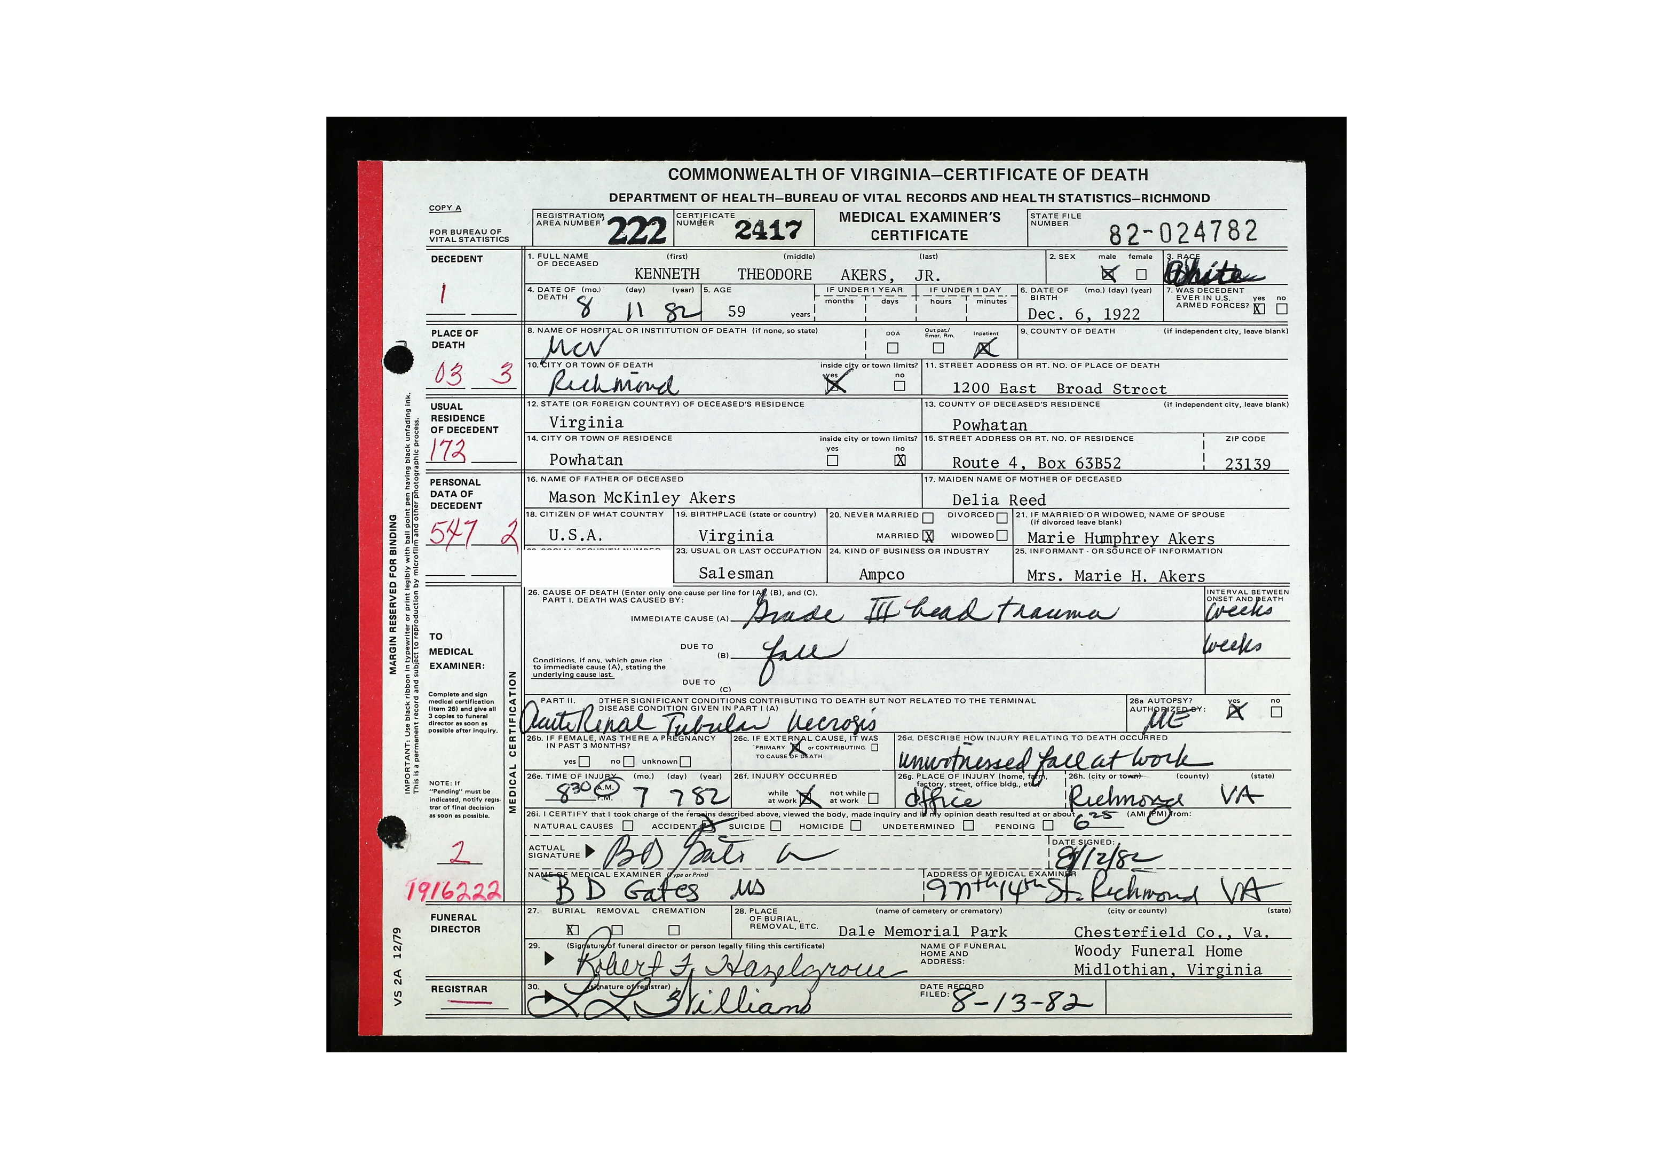 COMMONWEALTH OF VIRGINIA—CERTIFICATE OF DEATH
DEPARTMENT OF HEALTH—BUREAU OF VITAL RECORDS AND HEALTH STATISTICS—RICHMOND
COPY A
FOR BUREAU OF VITAL STATISTICS
REGISTRATION AREA NUMBER 222
CERTIFICATE NUMBER 2417
MEDICAL EXAMINER'S CERTIFICATE
STATE FILE NUMBER 82-024782
DECEDENT
1
1. FULL NAME OF DECEASED (first) (middle) (last)
KENNETH THEODORE AKERS, JR.
2. SEX male female
3. RACE White
4. DATE OF DEATH (mo.) (day) (year) 8 11 82
5. AGE 59 years
IF UNDER 1 YEAR months days
IF UNDER 1 DAY hours minutes
6. DATE OF BIRTH (mo.) (day) (year)
Dec. 6, 1922
7. WAS DECEDENT EVER IN U.S. ARMED FORCES? yes no
PLACE OF DEATH
03 3
8. NAME OF HOSPITAL OR INSTITUTION OF DEATH (if none, so state)
MCV
DOA Out pat/ Emer. Rm. Inpatient
9. COUNTY OF DEATH (if independent city, leave blank)
10. CITY OR TOWN OF DEATH
Richmond
inside city or town limits? yes no
11. STREET ADDRESS OR RT. NO. OF PLACE OF DEATH
1200 East Broad Street
USUAL RESIDENCE OF DECEDENT
172
12. STATE (OR FOREIGN COUNTRY) OF DECEASED'S RESIDENCE
Virginia
13. COUNTY OF DECEASED'S RESIDENCE (if independent city, leave blank)
Powhatan
14. CITY OR TOWN OF RESIDENCE
Powhatan
inside city or town limits? yes no
15. STREET ADDRESS OR RT. NO. OF RESIDENCE
Route 4, Box 63B52
ZIP CODE
23139
PERSONAL DATA OF DECEDENT
547 2
16. NAME OF FATHER OF DECEASED
Mason McKinley Akers
17. MAIDEN NAME OF MOTHER OF DECEASED
Delia Reed
18. CITIZEN OF WHAT COUNTRY
U.S.A.
19. BIRTHPLACE (state or country)
Virginia
20. NEVER MARRIED DIVORCED
MARRIED WIDOWED
21. IF MARRIED OR WIDOWED, NAME OF SPOUSE (if divorced leave blank)
Marie Humphrey Akers
23. USUAL OR LAST OCCUPATION
Salesman
24. KIND OF BUSINESS OR INDUSTRY
Ampco
25. INFORMANT - OR SOURCE OF INFORMATION
Mrs. Marie H. Akers
MARGIN RESERVED FOR BINDING
IMPORTANT: Use black ribbon in typewriter or print legibly with ball point pen having black unfading ink.
This is a permanent record and subject to reproduction by microfilm and other photographic process.
TO MEDICAL EXAMINER:
Complete and sign medical certification (Item 26) and give all 3 copies to funeral director as soon as possible after inquiry.
NOTE: If "Pending" must be indicated, notify registrar of final decision as soon as possible.
MEDICAL CERTIFICATION
26. CAUSE OF DEATH (Enter only one cause per line for (A), (B), and (C).
PART I. DEATH WAS CAUSED BY:
INTERVAL BETWEEN ONSET AND DEATH
IMMEDIATE CAUSE (A) Grade III head trauma weeks
DUE TO (B) fall weeks
Conditions, if any, which gave rise to immediate cause (A), stating the underlying cause last.
DUE TO (C)
PART II. OTHER SIGNIFICANT CONDITIONS CONTRIBUTING TO DEATH BUT NOT RELATED TO THE TERMINAL DISEASE CONDITION GIVEN IN PART I (A)
Acute Renal Tubular Necrosis
26a AUTOPSY? yes no
AUTHORIZED BY: ME
26b. IF FEMALE, WAS THERE A PREGNANCY IN PAST 3 MONTHS?
yes no unknown
26c. IF EXTERNAL CAUSE, IT WAS
PRIMARY or CONTRIBUTING
TO CAUSE OF DEATH
26d. DESCRIBE HOW INJURY RELATING TO DEATH OCCURRED
unwitnessed fall at work
26e. TIME OF INJURY (mo.) (day) (year)
830 A.M. P.M. 7 7 82
26f. INJURY OCCURRED
while at work not while at work
26g. PLACE OF INJURY (home, farm, factory, street, office bldg., etc.)
office
26h. (city or town) (county) (state)
Richmond VA
26i. I CERTIFY that I took charge of the remains described above, viewed the body, made inquiry and in my opinion death resulted at or about 625 (AM) (PM) from:
NATURAL CAUSES ACCIDENT SUICIDE HOMICIDE UNDETERMINED PENDING
ACTUAL SIGNATURE BD Gates
DATE SIGNED: 8/12/82
2
1916222
NAME OF MEDICAL EXAMINER (Type or Print)
B D Gates MD
ADDRESS OF MEDICAL EXAMINER
9 nth 14th St. Richmond VA
FUNERAL DIRECTOR
27. BURIAL REMOVAL CREMATION
28. PLACE OF BURIAL, REMOVAL, ETC. (name of cemetery or crematory) (city or county) (state)
Dale Memorial Park Chesterfield Co., Va.
29. (Signature of funeral director or person legally filing this certificate)
Robert F. Hazelgrove
NAME OF FUNERAL HOME AND ADDRESS:
Woody Funeral Home
Midlothian, Virginia
REGISTRAR
30. (signature of registrar)
Williams
DATE RECORD FILED: 8-13-82
VS 2A 12/79